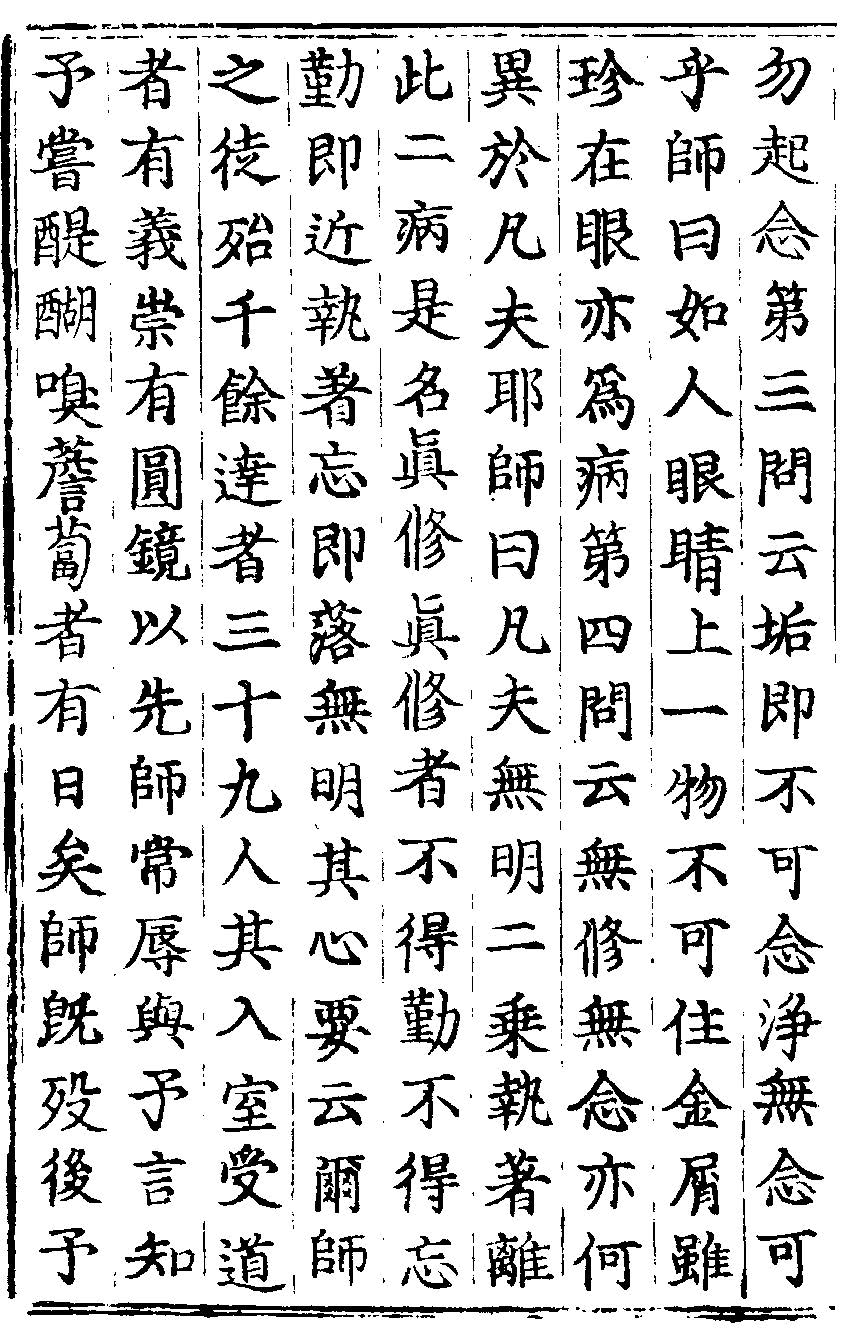 勿起念第三問云垢即不可念淨無念可
乎師曰如人眼睛上一物不可住金屑雖
珍在眼亦為病第四問云無修無念亦何
異於凡夫耶師曰凡夫無明二乗執著離
此二病是名眞修眞修者不得勤不得忘
勤即近執著忘即落無明其心要云爾師
之徒殆千餘達者三十九人其入室受道
者有義崇有圓鏡以先師常辱與予言知
予嘗醍醐嗅薝蔔者有日矣師旣歿後予